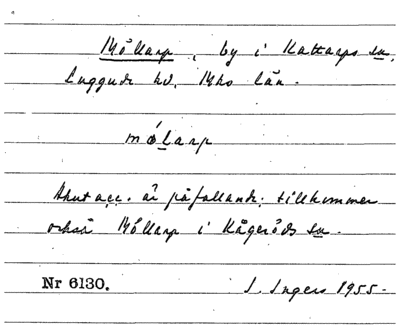 Möllarp, by i Kattarps sn,
Luggude hd, Mho län.
mólarp
Akut acc. är påfallande; tillkommer
också Möllarp i Kågeröds sn.
Nr 6130. I. Ingers 1955.